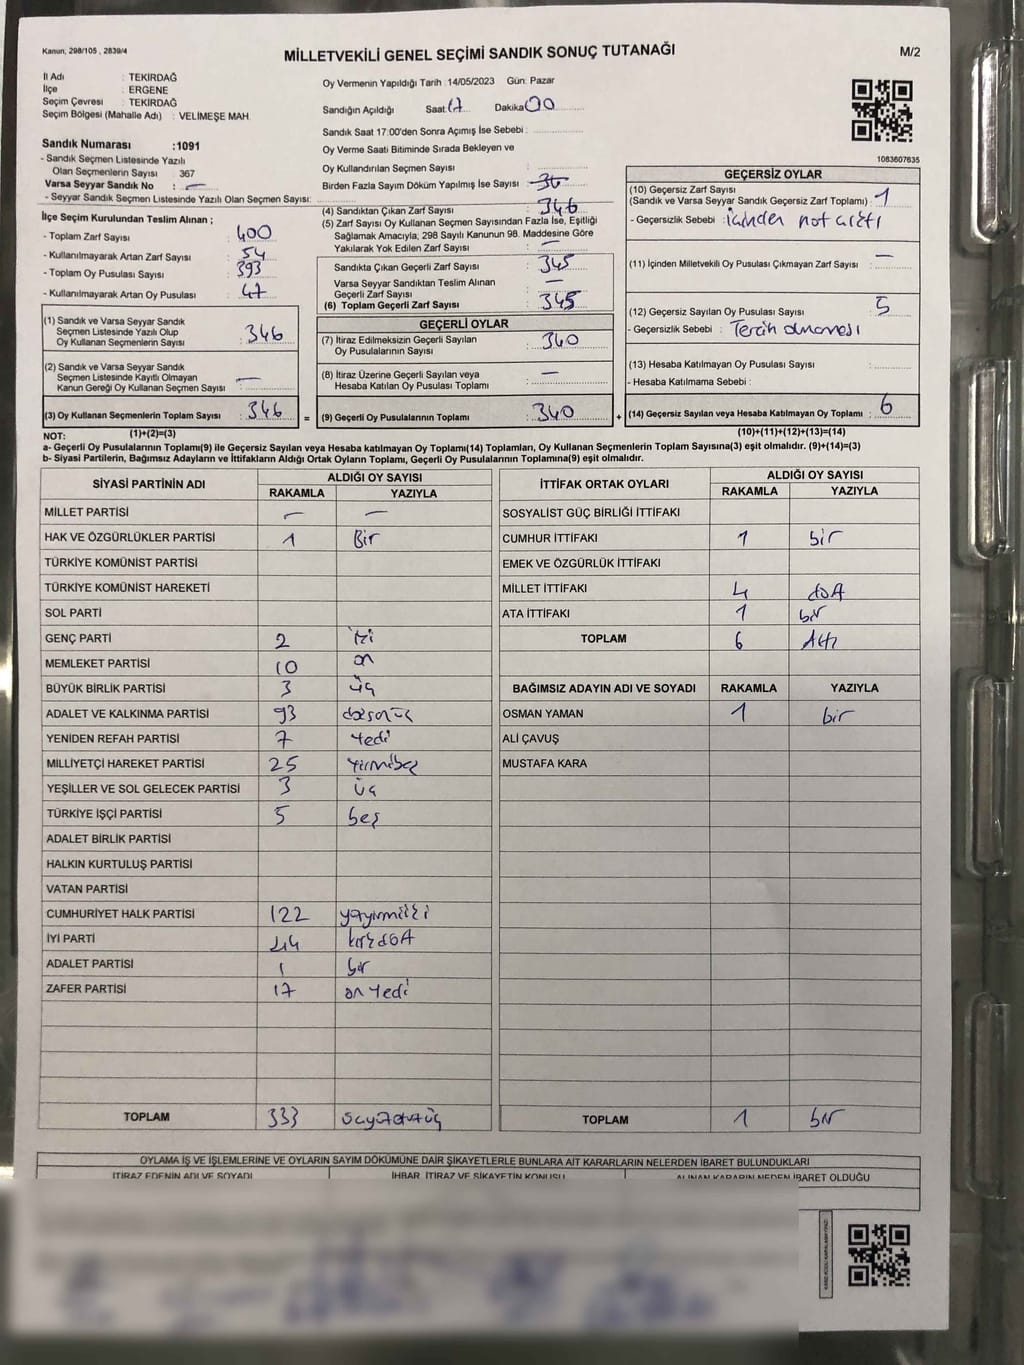 Kanun, 298/105 , 2839/4
MİLLETVEKİLİ GENEL SEÇİMİ SANDIK SONUÇ TUTANAĞI
M/2
İl Adı : TEKİRDAĞ
İlçe : ERGENE
Seçim Çevresi : TEKİRDAĞ
Seçim Bölgesi (Mahalle Adı) : VELİMEŞE MAH.
Sandık Numarası :1091
- Sandık Seçmen Listesinde Yazılı
Olan Seçmenlerin Sayısı 367
Varsa Seyyar Sandık No : —
- Seyyar Sandık Seçmen Listesinde Yazılı Olan Seçmen Sayısı:
Oy Vermenin Yapıldığı Tarih :14/05/2023 Gün: Pazar
Sandığın Açıldığı Saat: 17 Dakika 00
Sandık Saat 17:00'den Sonra Açımış İse Sebebi :
Oy Verme Saati Bitiminde Sırada Bekleyen ve
Oy Kullandırılan Seçmen Sayısı
Birden Fazla Sayım Döküm Yapılmış İse Sayısı
1083607635
İlçe Seçim Kurulundan Teslim Alınan ;
- Toplam Zarf Sayısı : 400
- Kullanılmayarak Artan Zarf Sayısı : 54
- Toplam Oy Pusulası Sayısı : 393
- Kullanılmayarak Artan Oy Pusulası : 47
(1) Sandık ve Varsa Seyyar Sandık
Seçmen Listesinde Yazılı Olup
Oy Kullanan Seçmenlerin Sayısı : 346
(2) Sandık ve Varsa Seyyar Sandık
Seçmen Listesinde Kayıtlı Olmayan
Kanun Gereği Oy Kullanan Seçmen Sayısı : —
(3) Oy Kullanan Seçmenlerin Toplam Sayısı : 346 =
(1)+(2)=(3)
(4) Sandıktan Çıkan Zarf Sayısı : 346
(5) Zarf Sayısı Oy Kullanan Seçmen Sayısından Fazla İse, Eşitliği
Sağlamak Amacıyla, 298 Sayılı Kanunun 98. Maddesine Göre
Yakılarak Yok Edilen Zarf Sayısı : —
Sandıkta Çıkan Geçerli Zarf Sayısı : 345
Varsa Seyyar Sandıktan Teslim Alınan
Geçerli Zarf Sayısı : —
(6) Toplam Geçerli Zarf Sayısı : 345
GEÇERLİ OYLAR
(7) İtiraz Edilmeksizin Geçerli Sayılan
Oy Pusulalarının Sayısı : 340
(8) İtiraz Üzerine Geçerli Sayılan veya
Hesaba Katılan Oy Pusulası Toplamı : —
(9) Geçerli Oy Pusulalarının Toplamı : 340 +
GEÇERSİZ OYLAR
(10) Geçersiz Zarf Sayısı
(Sandık ve Varsa Seyyar Sandık Geçersiz Zarf Toplamı) : 1
- Geçersizlik Sebebi : İçinden not çıktı
(11) İçinden Milletvekili Oy Pusulası Çıkmayan Zarf Sayısı : —
(12) Geçersiz Sayılan Oy Pusulası Sayısı : 5
- Geçersizlik Sebebi : Tercih olmaması
(13) Hesaba Katılmayan Oy Pusulası Sayısı :
- Hesaba Katılmama Sebebi :
(14) Geçersiz Sayılan veya Hesaba Katılmayan Oy Toplamı : 6
(10)+(11)+(12)+(13)=(14)
NOT:
a- Geçerli Oy Pusulalarının Toplamı(9) ile Geçersiz Sayılan veya Hesaba katılmayan Oy Toplamı(14) Toplamları, Oy Kullanan Seçmenlerin Toplam Sayısına(3) eşit olmalıdır. (9)+(14)=(3)
b- Siyasi Partilerin, Bağımsız Adayların ve İttifakların Aldığı Ortak Oyların Toplamı, Geçerli Oy Pusulalarının Toplamına(9) eşit olmalıdır.
SİYASİ PARTİNİN ADI ALDIĞI OY SAYISI
RAKAMLA YAZIYLA
MİLLET PARTİSİ — —
HAK VE ÖZGÜRLÜKLER PARTİSİ 1 Bir
TÜRKİYE KOMÜNİST PARTİSİ
TÜRKİYE KOMÜNİST HAREKETİ
SOL PARTİ
GENÇ PARTİ 2 iki
MEMLEKET PARTİSİ 10 on
BÜYÜK BİRLİK PARTİSİ 3 üç
ADALET VE KALKINMA PARTİSİ 93
YENİDEN REFAH PARTİSİ 7 Yedi
MİLLİYETÇİ HAREKET PARTİSİ 25 Yirmibeş
YEŞİLLER VE SOL GELECEK PARTİSİ 3 üç
TÜRKİYE İŞÇİ PARTİSİ 5 beş
ADALET BİRLİK PARTİSİ
HALKIN KURTULUŞ PARTİSİ
VATAN PARTİSİ
CUMHURİYET HALK PARTİSİ 122
İYİ PARTİ 44
ADALET PARTİSİ 1 bir
ZAFER PARTİSİ 17 on Yedi
TOPLAM 333
İTTİFAK ORTAK OYLARI ALDIĞI OY SAYISI
RAKAMLA YAZIYLA
SOSYALİST GÜÇ BİRLİĞİ İTTİFAKI
CUMHUR İTTİFAKI 1 bir
EMEK VE ÖZGÜRLÜK İTTİFAKI
MİLLET İTTİFAKI 4 dört
ATA İTTİFAKI 1 bir
TOPLAM 6 Altı
BAĞIMSIZ ADAYIN ADI VE SOYADI RAKAMLA YAZIYLA
OSMAN YAMAN 1 bir
ALİ ÇAVUŞ
MUSTAFA KARA
TOPLAM 1 bir
OYLAMA İŞ VE İŞLEMLERİNE VE OYLARIN SAYIM DÖKÜMÜNE DAİR ŞİKAYETLERLE BUNLARA AİT KARARLARIN NELERDEN İBARET BULUNDUKLARI
İTİRAZ EDENİN ADI VE SOYADI İHBAR, İTİRAZ VE ŞİKAYETİN KONUSU ALINAN KARARIN NEDEN İBARET OLDUĞU